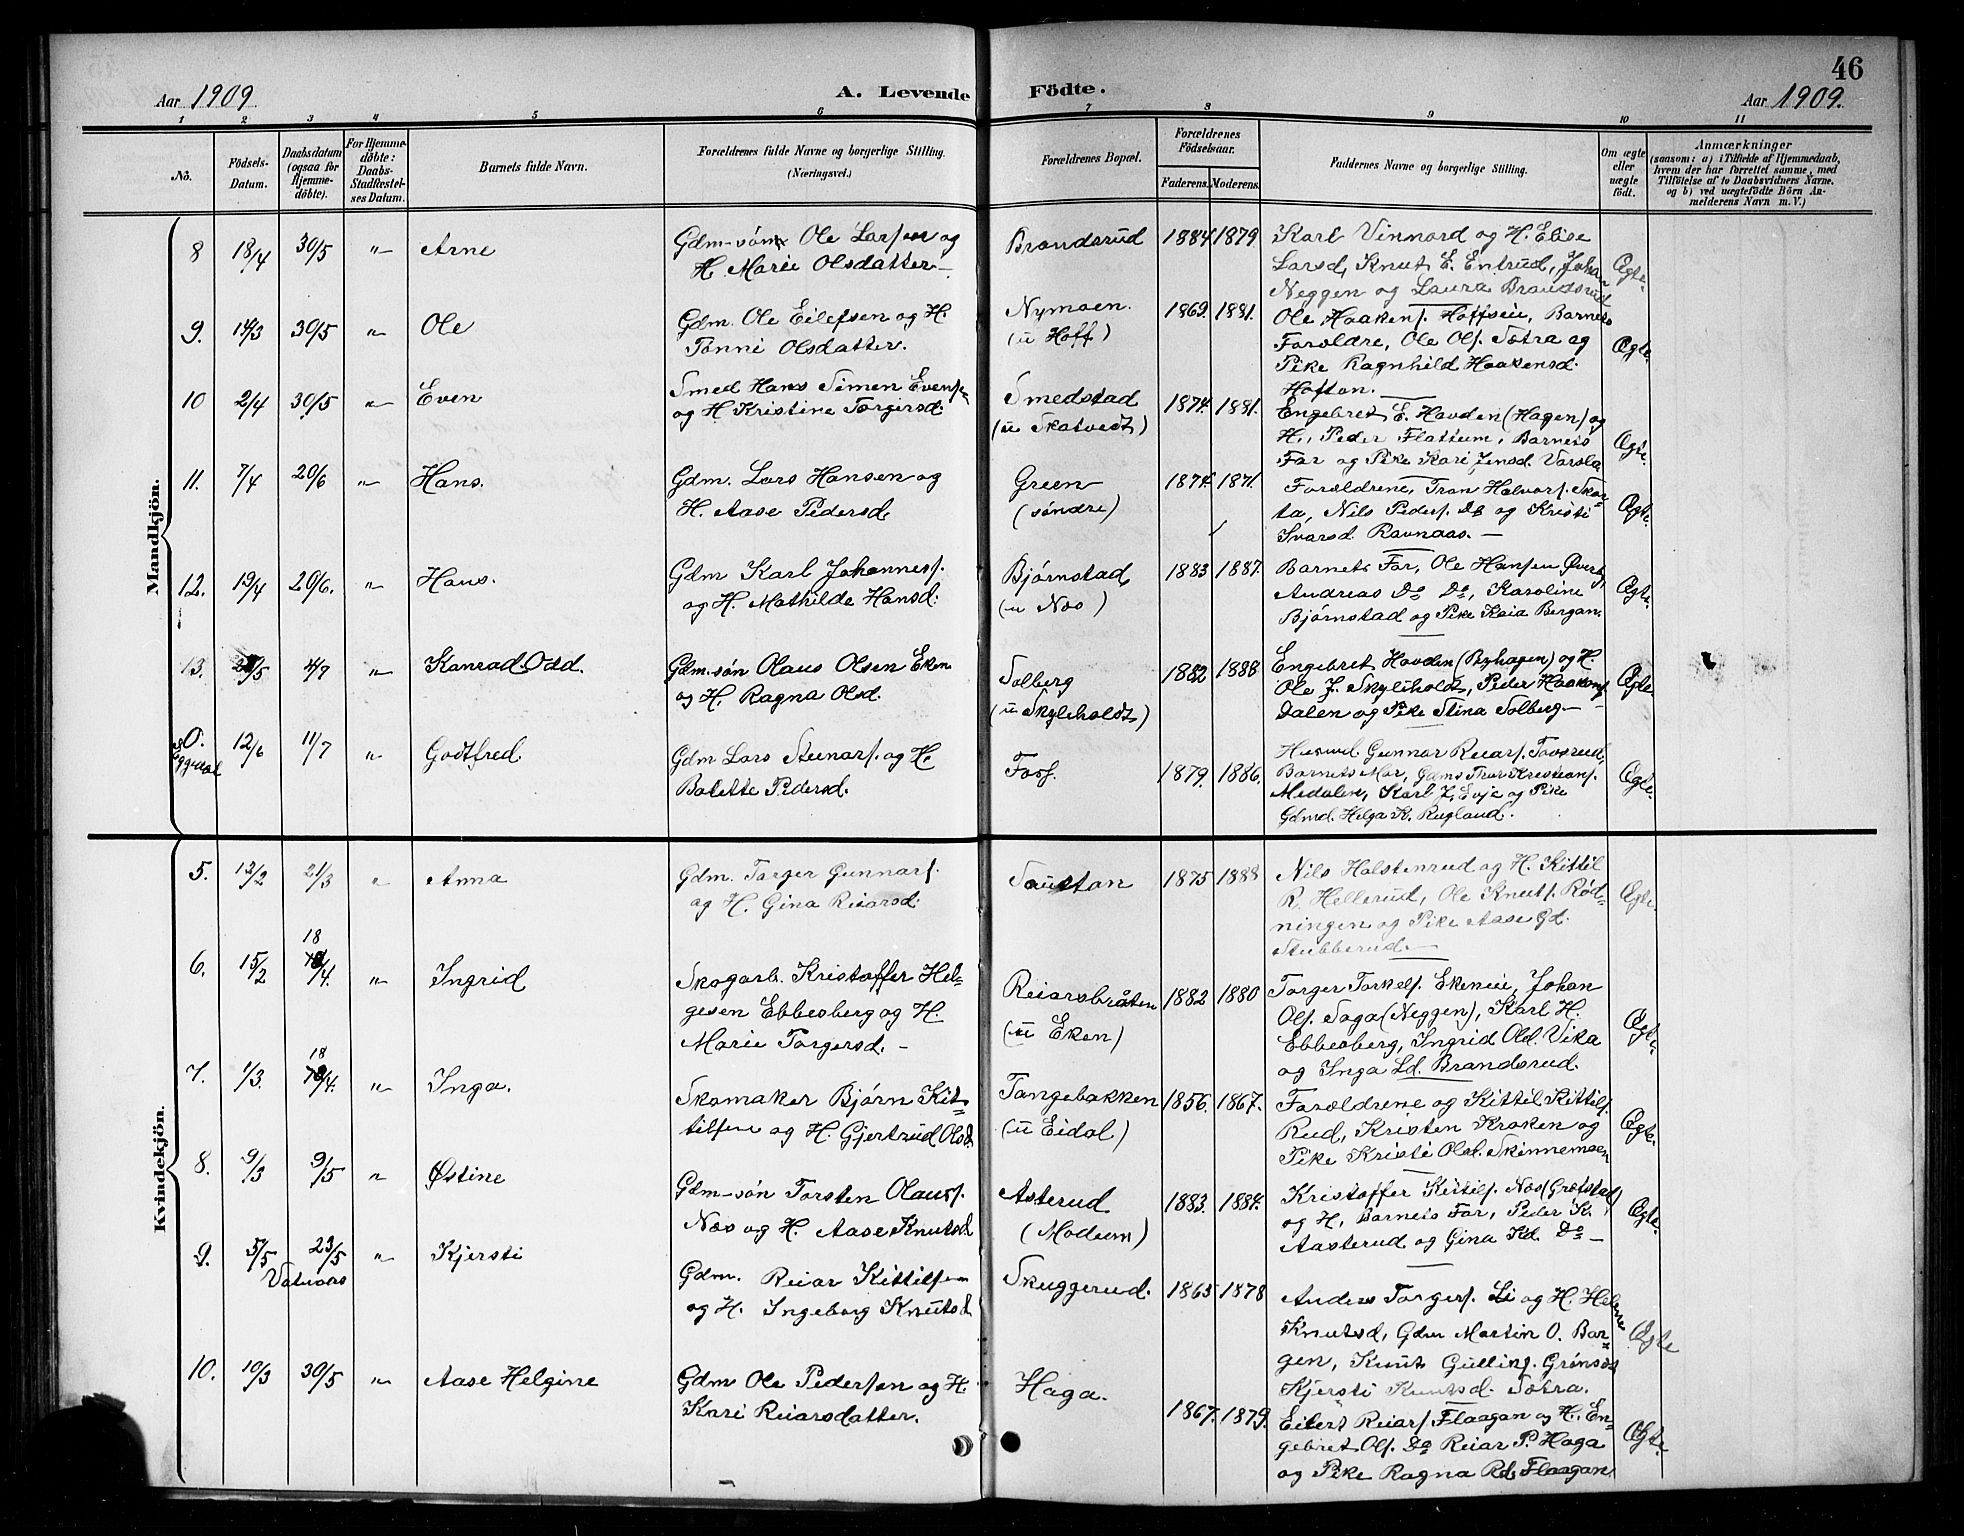 46
Aar 1909.
A. Levende Födte.
Aar 1909.
1 2 3 4 5 6 7 8 9 10 11
No.
Födsels-
Datum.
Daabsdatum
(ogsaa for
Hjemme-
döbte).
For Hjemme-
döbte:
Daabs-
Stadfæstel-
ses Datum.
Barnets fulde Navn.
Forældrenes fulde Navne og borgerlige Stilling.
(Næringsvei.)
Forældrenes Bopæl.
Forældrenes
Födselsaar.
Faderens. Moderens.
Faddernes Navne og borgerlige Stilling.
Om ægte
eller
uægte
födt.
Anmærkninger
(saasom: a) i Tilfælde af Hjemmedaab,
hvem der har forrettet samme, med
Tilföielse af to Daabsvidners Navne.
og b) ved uægtefödte Börn An-
melderens Navn m. V.)
Mandkjön.
8 18/4 30/5 " Arne
Gdm-søn Ole Larsen og
H. Marie Olsdatter
Brandsrud
1884 1879
Karl Vinnord og H. Elise
Larsd, Knut E. Entrud, Johan
Neggen og Laura Brandsrud
Ægte.
9. 14/3 30/5 " Ole
Gdm. Ole Eilefsen og H
Tønni Olsdatter.
Nymoen.
(u Hoff)
1862. 1881.
Ole Haakens. Hoffseie, Barnets
Forældre, Ole Ols. Sætra og
Pike Ragnhild Haakensd.
Hoffton.
Ægte.
10 2/4 30/5 " Even
Smed Hans Simen Evense
og H Kristine Torgersd.
Smedstad
(u Skatvedt)
1874. 1881.
Engebret E. Hovden (Hagen) og
H., Peder Flattum, Barnets
Far og Pike Kari Jensd. Varsla
Ægte.
11. 7/4 20/6 " Hans.
Gdm. Lars Hansen og
H. Aase Pedersd.
Green
(søndre)
1874. 1871.
Forældrene, Tron Halvors. Skar-
ta, Nils Peders. Do og Kristi
Ivarsd. Ravnaas.
Ægte.
12. 19/4 20/6. " Hans.
Gdm Karl Johannes.
og H. Mathilde Hansd.
Bjørnstad
(u Næs)
1883 1887.
Barnets Far, Ole Hansen Øverby,
Andreas Do Do, Karoline
Bjørnstad og Pike Kaia Bergan.
Ægte.
13. /5 4/7 " Konrad Odd.
Gdm-søn Olaus Olsen Eken
og H. Ragna Olsd.
Solberg
(u Skyliholdt)
1882 1888
Engebret Hovden (Byhagen) og H.
Ole J. Skyliholdt, Peder Haakens.
Dalen og Pike Stina Solberg.
Ægte.
O.
Eggedal
12/6 11/7 " Godtfred.
Gdm Lars Steinars. og H.
Bolette Pedersd.
Foss.
1879. 1886.
Husmd. Gunnar Reiars. Tovsrud,
Barnets Mor, Gdms Thor Kristians.
Medalen, Karl J. Evje og Pike
Gdmd. Helga K. Rugland.
Ægte.
Kvindekjön.
5. 13/2 21/3 " Anna
Gdm. Torger Gunnars.
og H. Gina Reiarsd.
Saustan
1875 1888
Nils Holstenrud og H. Kittil
R. Hellerud, Ole Knuts. Rød-
ningen og Pike Aase Gd.
Stubberud.
Ægte.
6. 15/2 18/4. " Ingrid
Skogarb. Kristoffer Hel-
gesen Ebbesberg og H.
Marie Torgersd.
Reiarsbråten
(u Eken)
1882 1880
Torger Torkels. Ekeneie, Johan
Ols. Saga (Neggen), Karl H.
Ebbesberg, Ingrid Old. Vika
og Inga Ld. Brandsrud.
Ægte.
7. 1/3. 18/4. " Inga.
Skomaker Bjørn Kit-
tilsen og H. Gjertrud Olsd
Tangebakken
(u Eidal)
1856. 1867.
Forældrene og Kittil Kittils.
Rud, Kristen Kroken og
Pike Kristi Olsd. Skinnemoen
Ægte.
8. 9/3 9/5 " Østine
Gdm-søn Torsten Olaus.
Næs og H. Aase Knutsd
Asterud
(Modum)
1883. 1884.
Kristoffer Kittils. Næs (Grætstad)
og H, Barnets Far, Peder K.
Aasterud og Gina Kd. Do
Ægte.
9. 5/5 23/5 " Kjersti
Vatnaas
Gdm. Reiar Kittilsen
og H. Ingeborg Knutsd
Skuggerud.
1865 1878
Anders Torgers. Li og H. Helene
Knutsd, Gdm Martin O. Bar-
gen, Knut Gullins. Grønset
Kjersti Knutsd. Sætra.
Ægte
10. 10/3 30/5 " Aase Helgine
Gdm Ole Pedersen og H.
Kari Reiarsdatter.
Haga.
1867. 1879.
Eilert Reiars. Flaagan og H. En-
gebret Ols. Do Reiar P. Haga
og Pike Ragna Rd. Flaagan
Ægte.